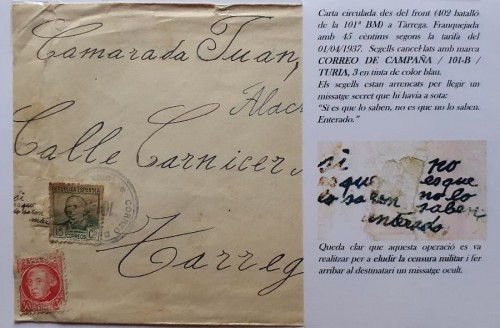 Camarada Juan,
Alac
Calle Carnicer
Tarreg
REPUBLICA ESPAÑOLA
15 Cts
CORREOS
CORREO D
Carta circulada des del front (402 batalló
de la 101ª BM) a Tàrrega. Franquejada
amb 45 cèntims segons la tarifa del
01/04/1937. Segells cancel·lats amb marca
CORREO DE CAMPAÑA / 101-B /
TURIA, 3 en tinta de color blau.
Els segells estan arrencats per llegir un
missatge secret que hi havia a sota:
"Si es que lo saben, no es que no lo saben.
Enterado."
si no
es que es que
lo saben no lo
saben
enterado
Queda clar que aquesta operació es va
realitzar per a eludir la censura militar i fer
arribar al destinatari un missatge ocult.